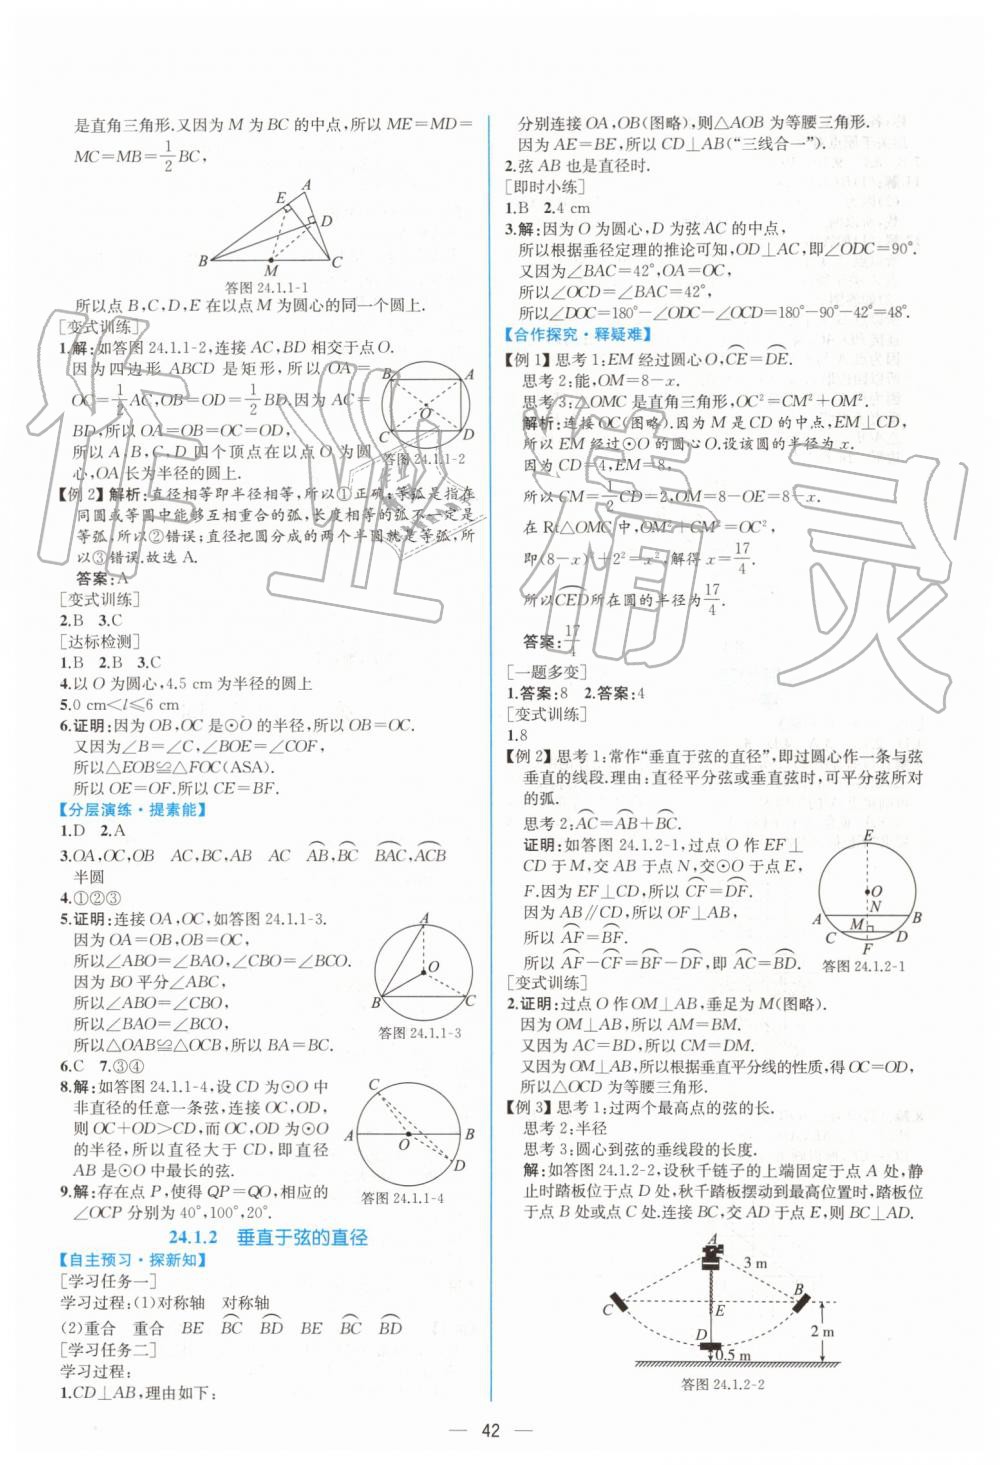 是直角三角形.又因为 M 为 BC 的中点,所以 ME=MD=
MC=MB=1/2 BC,
E A
D
B M C
答图 24.1.1-1
所以点 B,C,D,E 在以点 M 为圆心的同一个圆上.
[变式训练]
1.解:如答图 24.1.1-2,连接 AC,BD 相交于点 O.
因为四边形 ABCD 是矩形,所以 OA=
OC=1/2 AC,OB=OD=1/2 BD.因为 AC=
BD,所以 OA=OB=OC=OD.
所以 A,B,C,D 四个顶点在以 O 为圆
心,OA 长为半径的圆上.
B A
O
C D
答图 24.1.1-2
【例 2】解析:直径相等即半径相等,所以①正确;等弧是指在
同圆或等圆中能够互相重合的弧,长度相等的弧不一定是
等弧,所以②错误;直径把圆分成的两个半圆就是等弧,所
以③错误.故选 A.
答案:A
[变式训练]
2.B 3.C
[达标检测]
1.B 2.B 3.C
4.以 O 为圆心,4.5 cm 为半径的圆上
5.0 cm<l≤6 cm
6.证明:因为 OB,OC 是⊙O 的半径,所以 OB=OC.
又因为∠B=∠C,∠BOE=∠COF,
所以△EOB≌△FOC(ASA).
所以 OE=OF.所以 CE=BF.
【分层演练·提素能】
1.D 2.A
3.OA,OC,OB AC,BC,AB AC A͡B,B͡C B͡AC,A͡CB
半圆
4.①②③
5.证明:连接 OA,OC,如答图 24.1.1-3.
因为 OA=OB,OB=OC,
所以∠ABO=∠BAO,∠CBO=∠BCO.
因为 BO 平分∠ABC,
所以∠ABO=∠CBO,
所以∠BAO=∠BCO,
所以△OAB≌△OCB,所以 BA=BC.
A
O
B C
答图 24.1.1-3
6.C 7.③④
8.解:如答图 24.1.1-4,设 CD 为⊙O 中
非直径的任意一条弦,连接 OC,OD,
则 OC+OD>CD,而 OC,OD 为⊙O
的半径,所以直径大于 CD,即直径
AB 是⊙O 中最长的弦.
C
A O B
D
答图 24.1.1-4
9.解:存在点 P,使得 QP=QO,相应的
∠OCP 分别为 40°,100°,20°.
24.1.2 垂直于弦的直径
【自主预习·探新知】
[学习任务一]
学习过程:(1)对称轴 对称轴
(2)重合 重合 BE B͡C B͡D BE B͡C B͡D
[学习任务二]
学习过程:
1.CD⊥AB,理由如下:
分别连接 OA,OB(图略),则△AOB 为等腰三角形.
因为 AE=BE,所以 CD⊥AB(“三线合一”).
2.弦 AB 也是直径时.
[即时小练]
1.B 2.4 cm
3.解:因为 O 为圆心,D 为弦 AC 的中点,
所以根据垂径定理的推论可知,OD⊥AC,即∠ODC=90°.
又因为∠BAC=42°,OA=OC,
所以∠OCD=∠BAC=42°,
所以∠DOC=180°-∠ODC-∠OCD=180°-90°-42°=48°.
【合作探究·释疑难】
【例 1】思考 1:EM 经过圆心 O,C͡E=D͡E.
思考 2:能,OM=8-x.
思考 3:△OMC 是直角三角形,OC²=CM²+OM².
解析:连接 OC(图略).因为 M 是 CD 的中点,EM⊥CD,
所以 EM 经过⊙O 的圆心 O.设该圆的半径为 x.
因为 CD=4,EM=8,
所以 CM=1/2 CD=2,OM=8-OE=8-x.
在 Rt△OMC 中,OM²+CM²=OC²,
即(8-x)²+2²=x²,解得 x=17/4.
所以 C͡ED 所在圆的半径为 17/4.
答案:17/4
[一题多变]
1.答案:8 2.答案:4
[变式训练]
1.8
【例 2】思考 1:常作“垂直于弦的直径”,即过圆心作一条与弦
垂直的线段.理由:直径平分弦或垂直弦时,可平分弦所对
的弧.
思考 2:A͡C=A͡B+B͡C.
证明:如答图 24.1.2-1,过点 O 作 EF⊥
CD 于 M,交 AB 于点 N,交⊙O 于点 E,
F.因为 EF⊥CD,所以 C͡F=D͡F.
因为 AB∥CD,所以 OF⊥AB,
所以 A͡F=B͡F.
所以 A͡F-C͡F=B͡F-D͡F,即 A͡C=B͡D.
E
O
N
A B
M
C D
F
答图 24.1.2-1
[变式训练]
2.证明:过点 O 作 OM⊥AB,垂足为 M(图略).
因为 OM⊥AB,所以 AM=BM.
又因为 AC=BD,所以 CM=DM.
又因为 OM⊥AB,所以根据垂直平分线的性质,得 OC=OD,
所以△OCD 为等腰三角形.
【例 3】思考 1:过两个最高点的弦的长.
思考 2:半径
思考 3:圆心到弦的垂线段的长度.
解:如答图 24.1.2-2,设秋千链子的上端固定于点 A 处,静
止时踏板位于点 D 处,秋千踏板摆动到最高位置时,踏板位
于点 B 处或点 C 处.连接 BC,交 AD 于点 E,则 BC⊥AD.
A
3 m
C B
E
D 2 m
0.5 m
答图 24.1.2-2
42
作业精灵